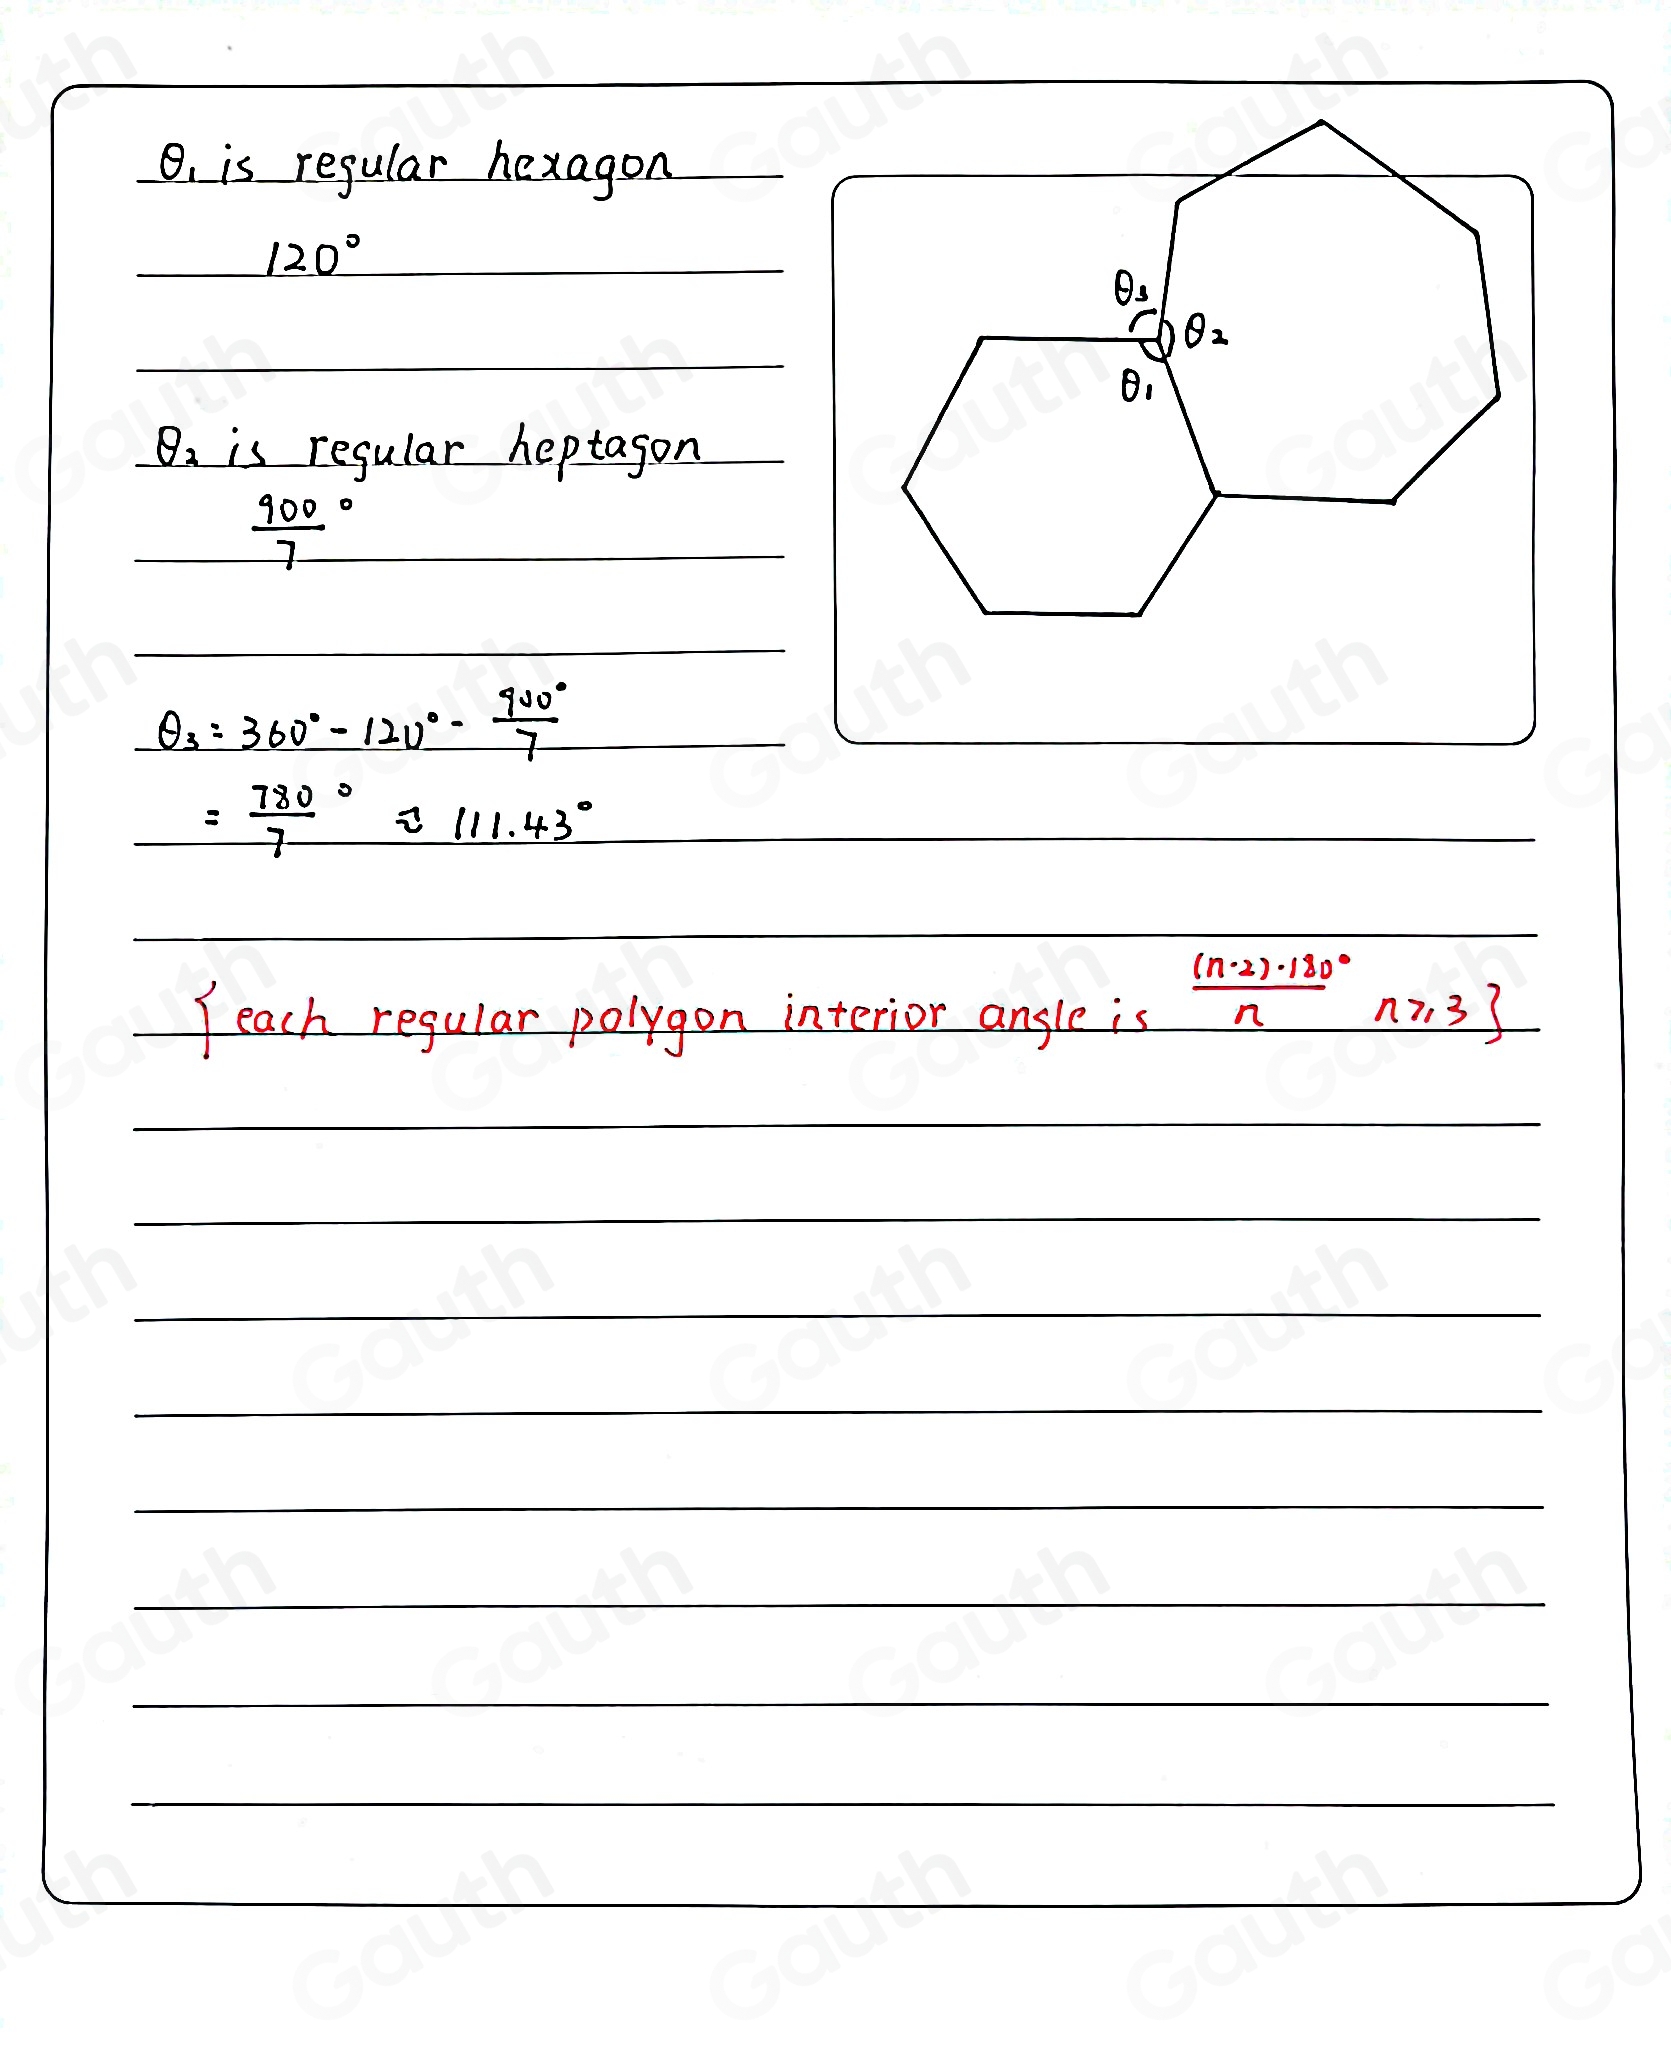 θ₁ is regular hexagon
120°
θ₂ is regular heptagon
900/7 °
θ₃ = 360° - 120° - 900°/7
= 780/7 ° ≈ 111.43°
θ₃
θ₂
θ₁
{each regular polygon interior angle is (n-2)·180°/n n⩾3}
Gauth